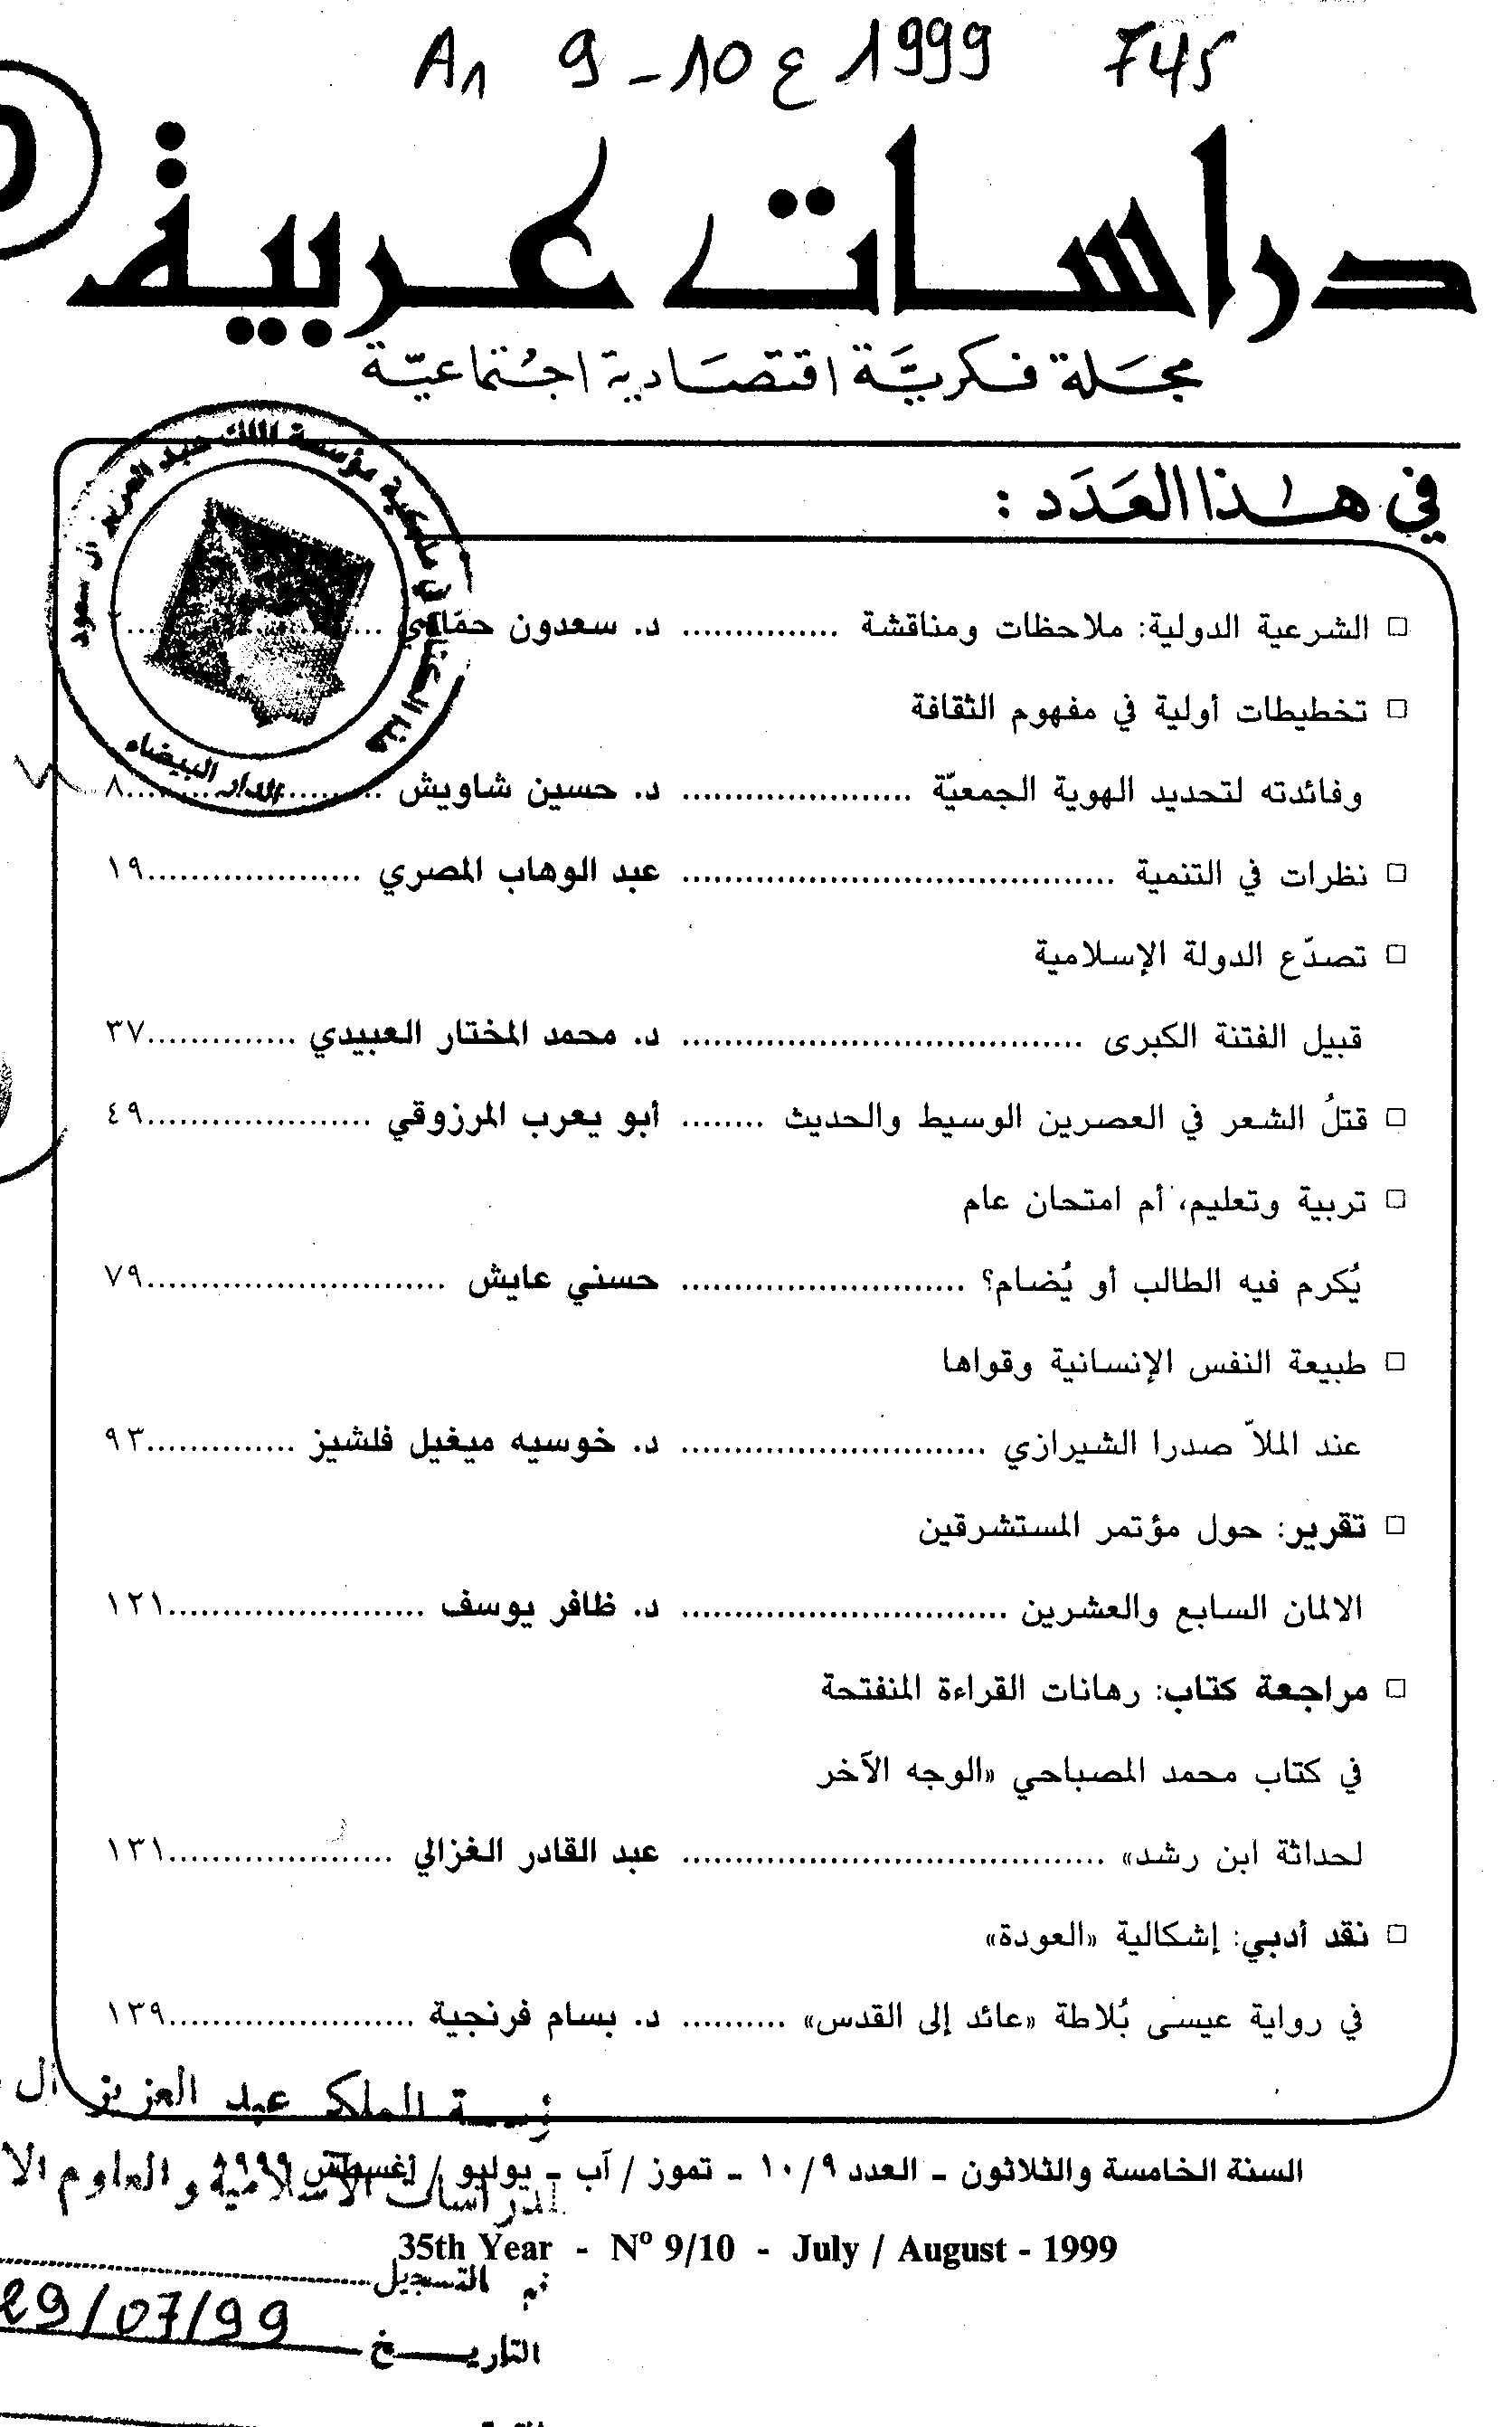 A1 9-10 ع 1999 745
دراسات عربية
مجلة فكريّة اقتصادية اجتماعيّة
في هذا العدد :
مؤسسة الملك عبد العزيز آل سعود
الدار البيضاء
□ الشرعية الدولية: ملاحظات ومناقشة ............... د. سعدون حمّادي ....................
□ تخطيطات أولية في مفهوم الثقافة
وفائدته لتحديد الهوية الجمعيّة ...................... د. حسين شاويش ........................٨
□ نظرات في التنمية ......................................... عبد الوهاب المصري ....................١٩
□ تصدّع الدولة الإسلامية
قبيل الفتنة الكبرى ...................................... د. محمد المختار العبيدي ..............٣٧
□ قتلُ الشعر في العصرين الوسيط والحديث ........ أبو يعرب المرزوقي .....................٤٩
□ تربية وتعليم، أم امتحان عام
يُكرم فيه الطالب أو يُضام؟ ........................... حسني عايش ............................٧٩
□ طبيعة النفس الإنسانية وقواها
عند الملاّ صدرا الشيرازي ............................. د. خوسيه ميغيل فلشيز ..............٩٣
□ تقرير: حول مؤتمر المستشرقين
الالمان السابع والعشرين ............................... د. ظافر يوسف ........................١٢١
□ مراجعة كتاب: رهانات القراءة المنفتحة
في كتاب محمد المصباحي «الوجه الآخر
لحداثة ابن رشد» ........................................ عبد القادر الغزالي .....................١٣١
□ نقد أدبي: إشكالية «العودة»
في رواية عيسى بُلاطة «عائد إلى القدس» .......... د. بسام فرنجية .......................١٣٩
ؤسسة الملك عبد العزيز آل
السنة الخامسة والثلاثون - العدد ١٠/٩ - تموز / آب - يوليو / أغسطس ١٩٩٩
الدراسات الاسلامية والعلوم الا
35th Year - Nº 9/10 - July / August - 1999
التسجيل
التاريخ 29/07/99